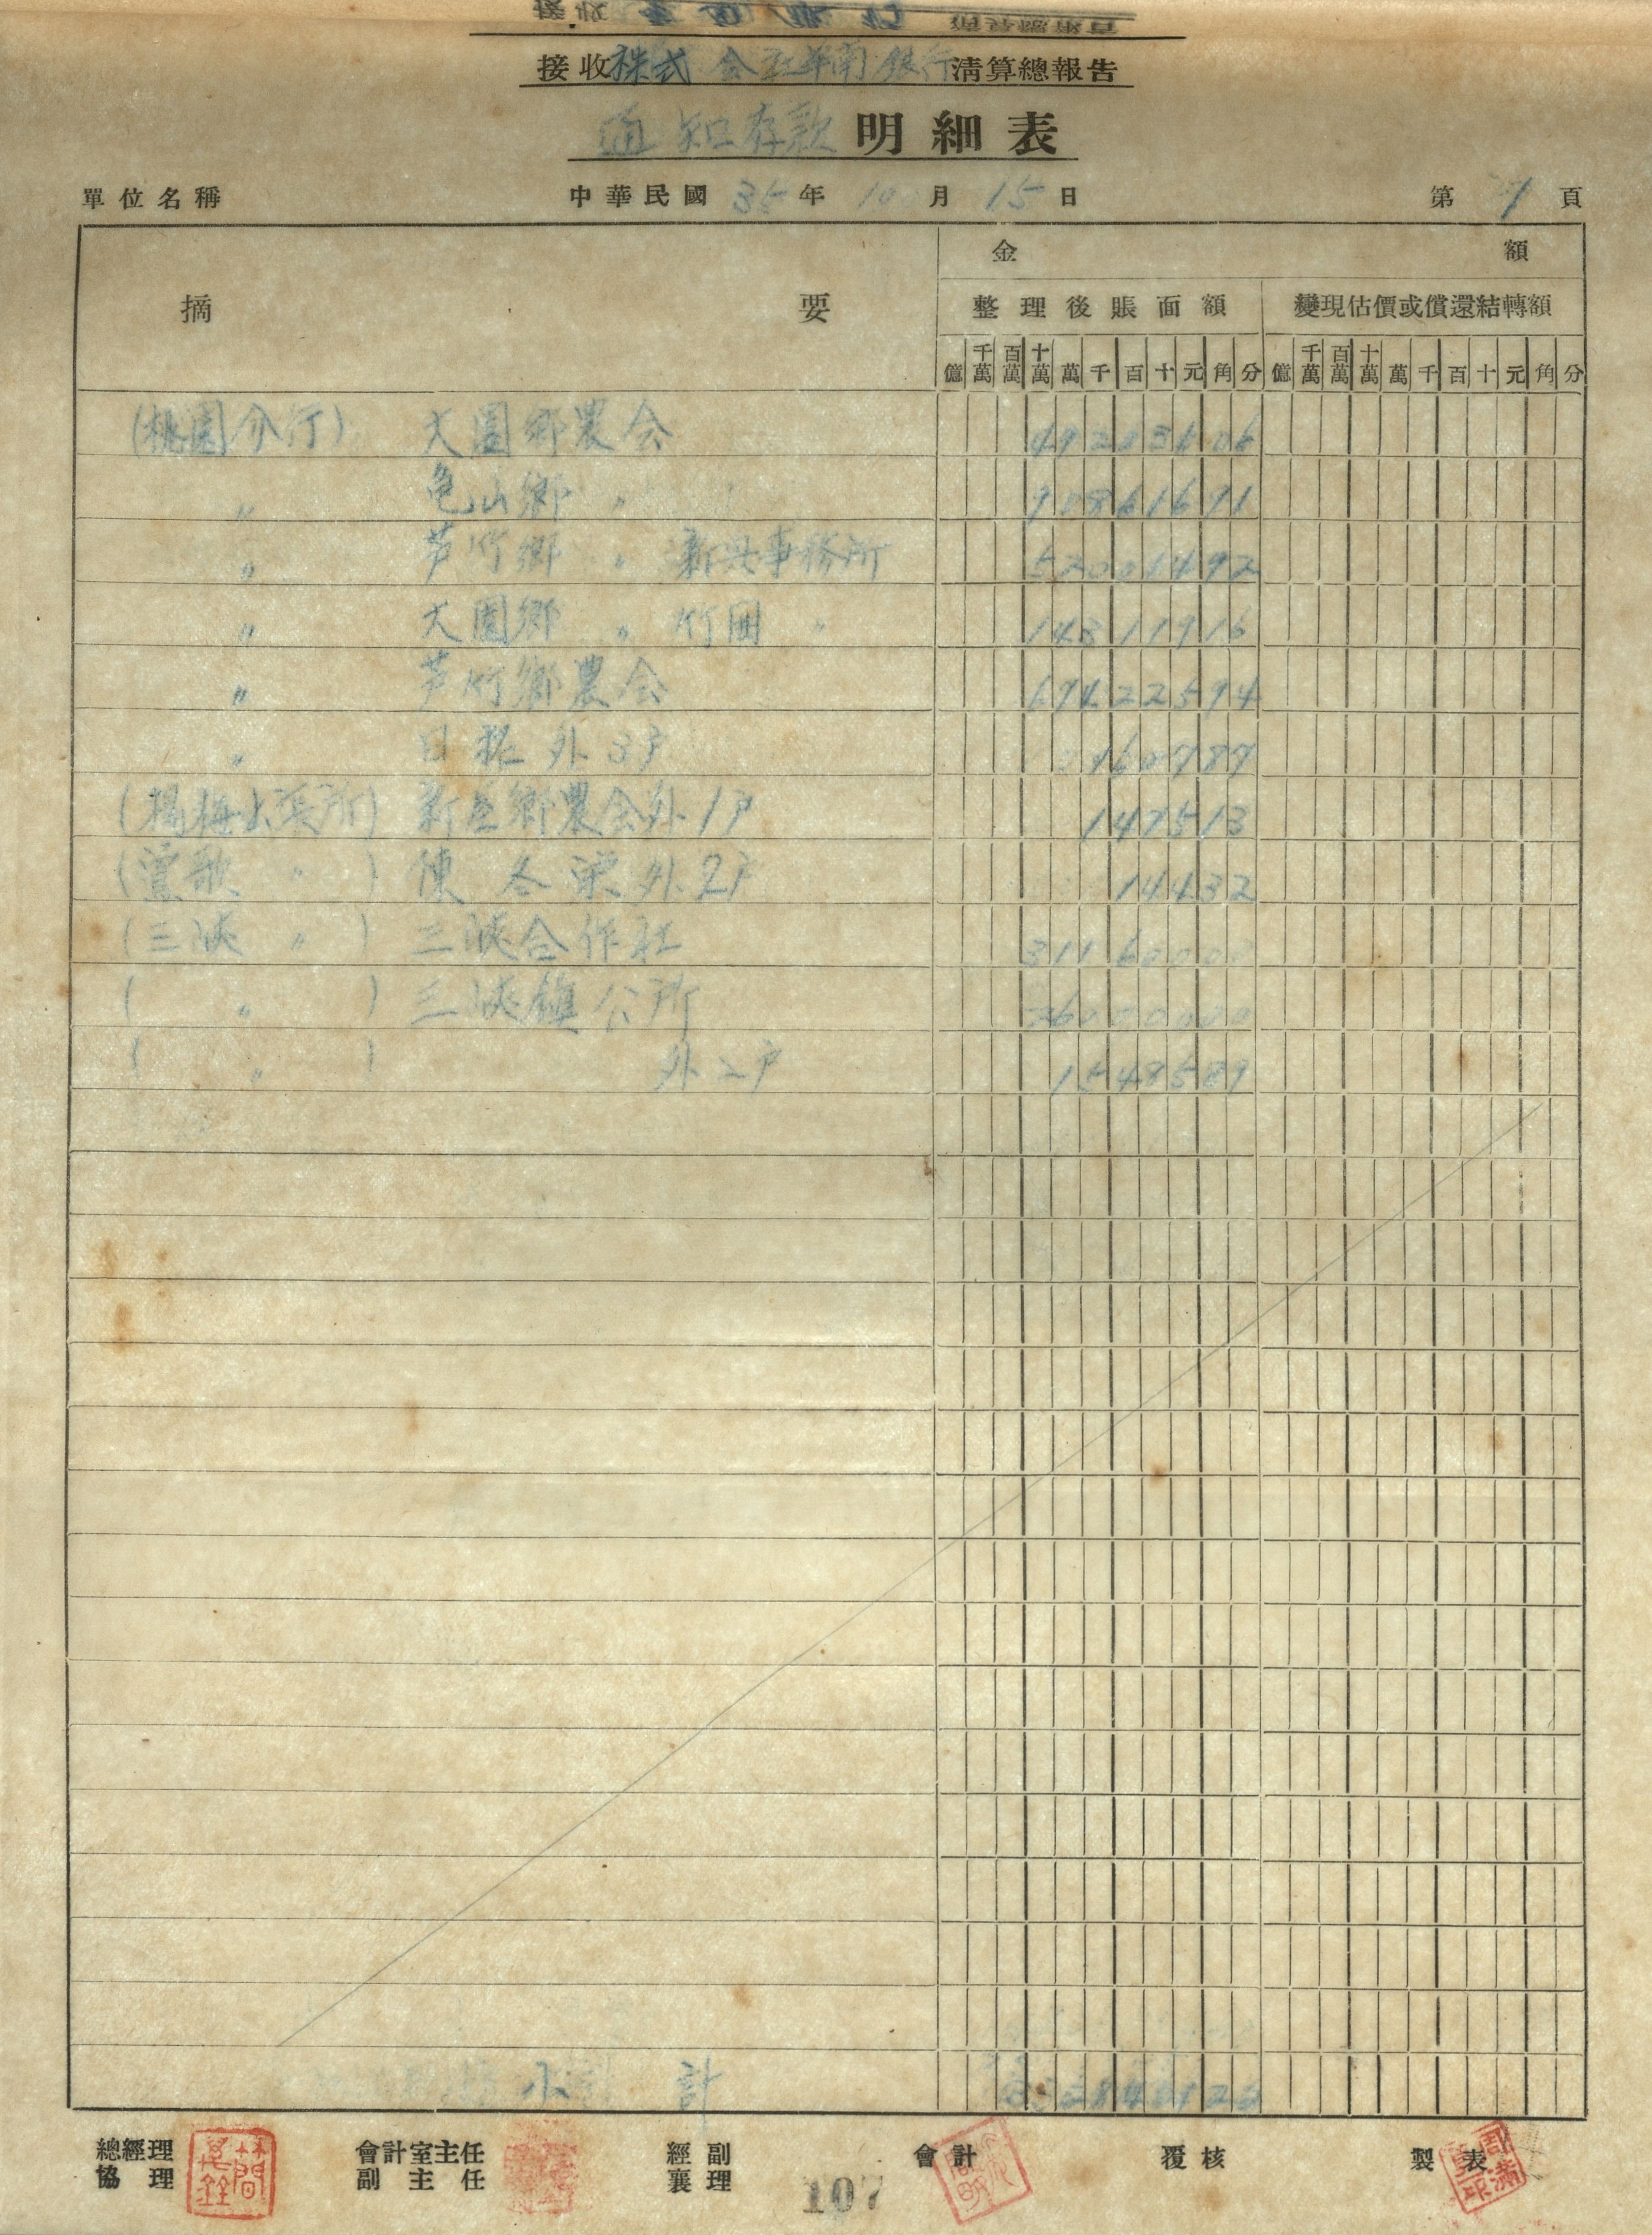 接收株式会社華南銀行清算總報告
通知存款明細表
單位名稱 中華民國35年10月15日 第 頁
摘要 金額
整理後賬面額 變現估價或償還結轉額
億 千萬 百萬 十萬 萬 千 百 十 元 角 分 億 千萬 百萬 十萬 萬 千 百 十 元 角 分
(桃園分行) 大園鄉農会
〃 亀山鄉 〃 90861691
〃 芦竹鄉 〃 新興事務所 52001492
〃 大園鄉 〃 竹囲 〃 14811916
〃 芦竹鄉農会 69422594
〃 外3戸
(楊梅出張所) 新屋鄉農会外1戸 147513
(鶯歌 〃 ) 陳冬 外2戸 14432
(三峽 〃 ) 三峽合作社 31160000
( 〃 ) 三峽鎮公所 26000000
( 〃 ) 外2戸 1548589
小計
總經理 會計室主任 經副 會計 覆核 製表
協理 副主任 襄理
107